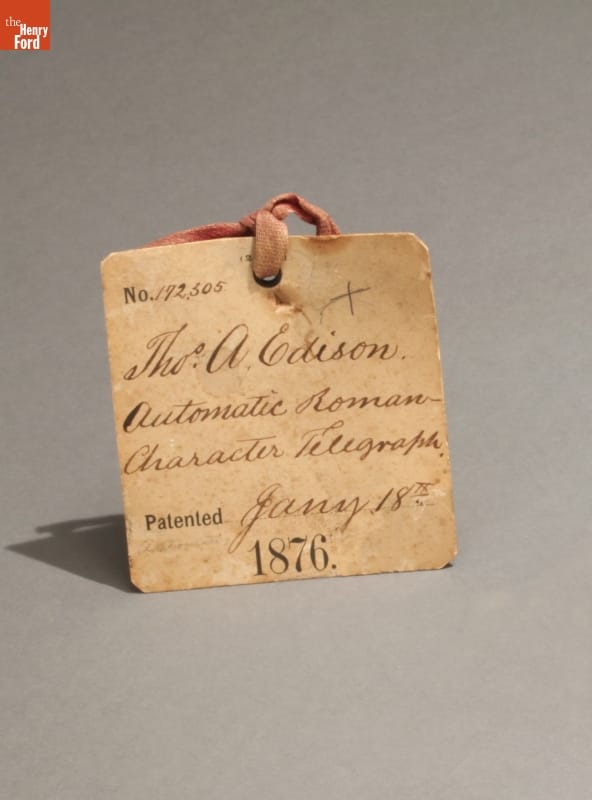 the
Henry
Ford
No. 172,305
Thos. A. Edison.
Automatic Roman-
Character Telegraph.
Patented Jany 18th
1876.